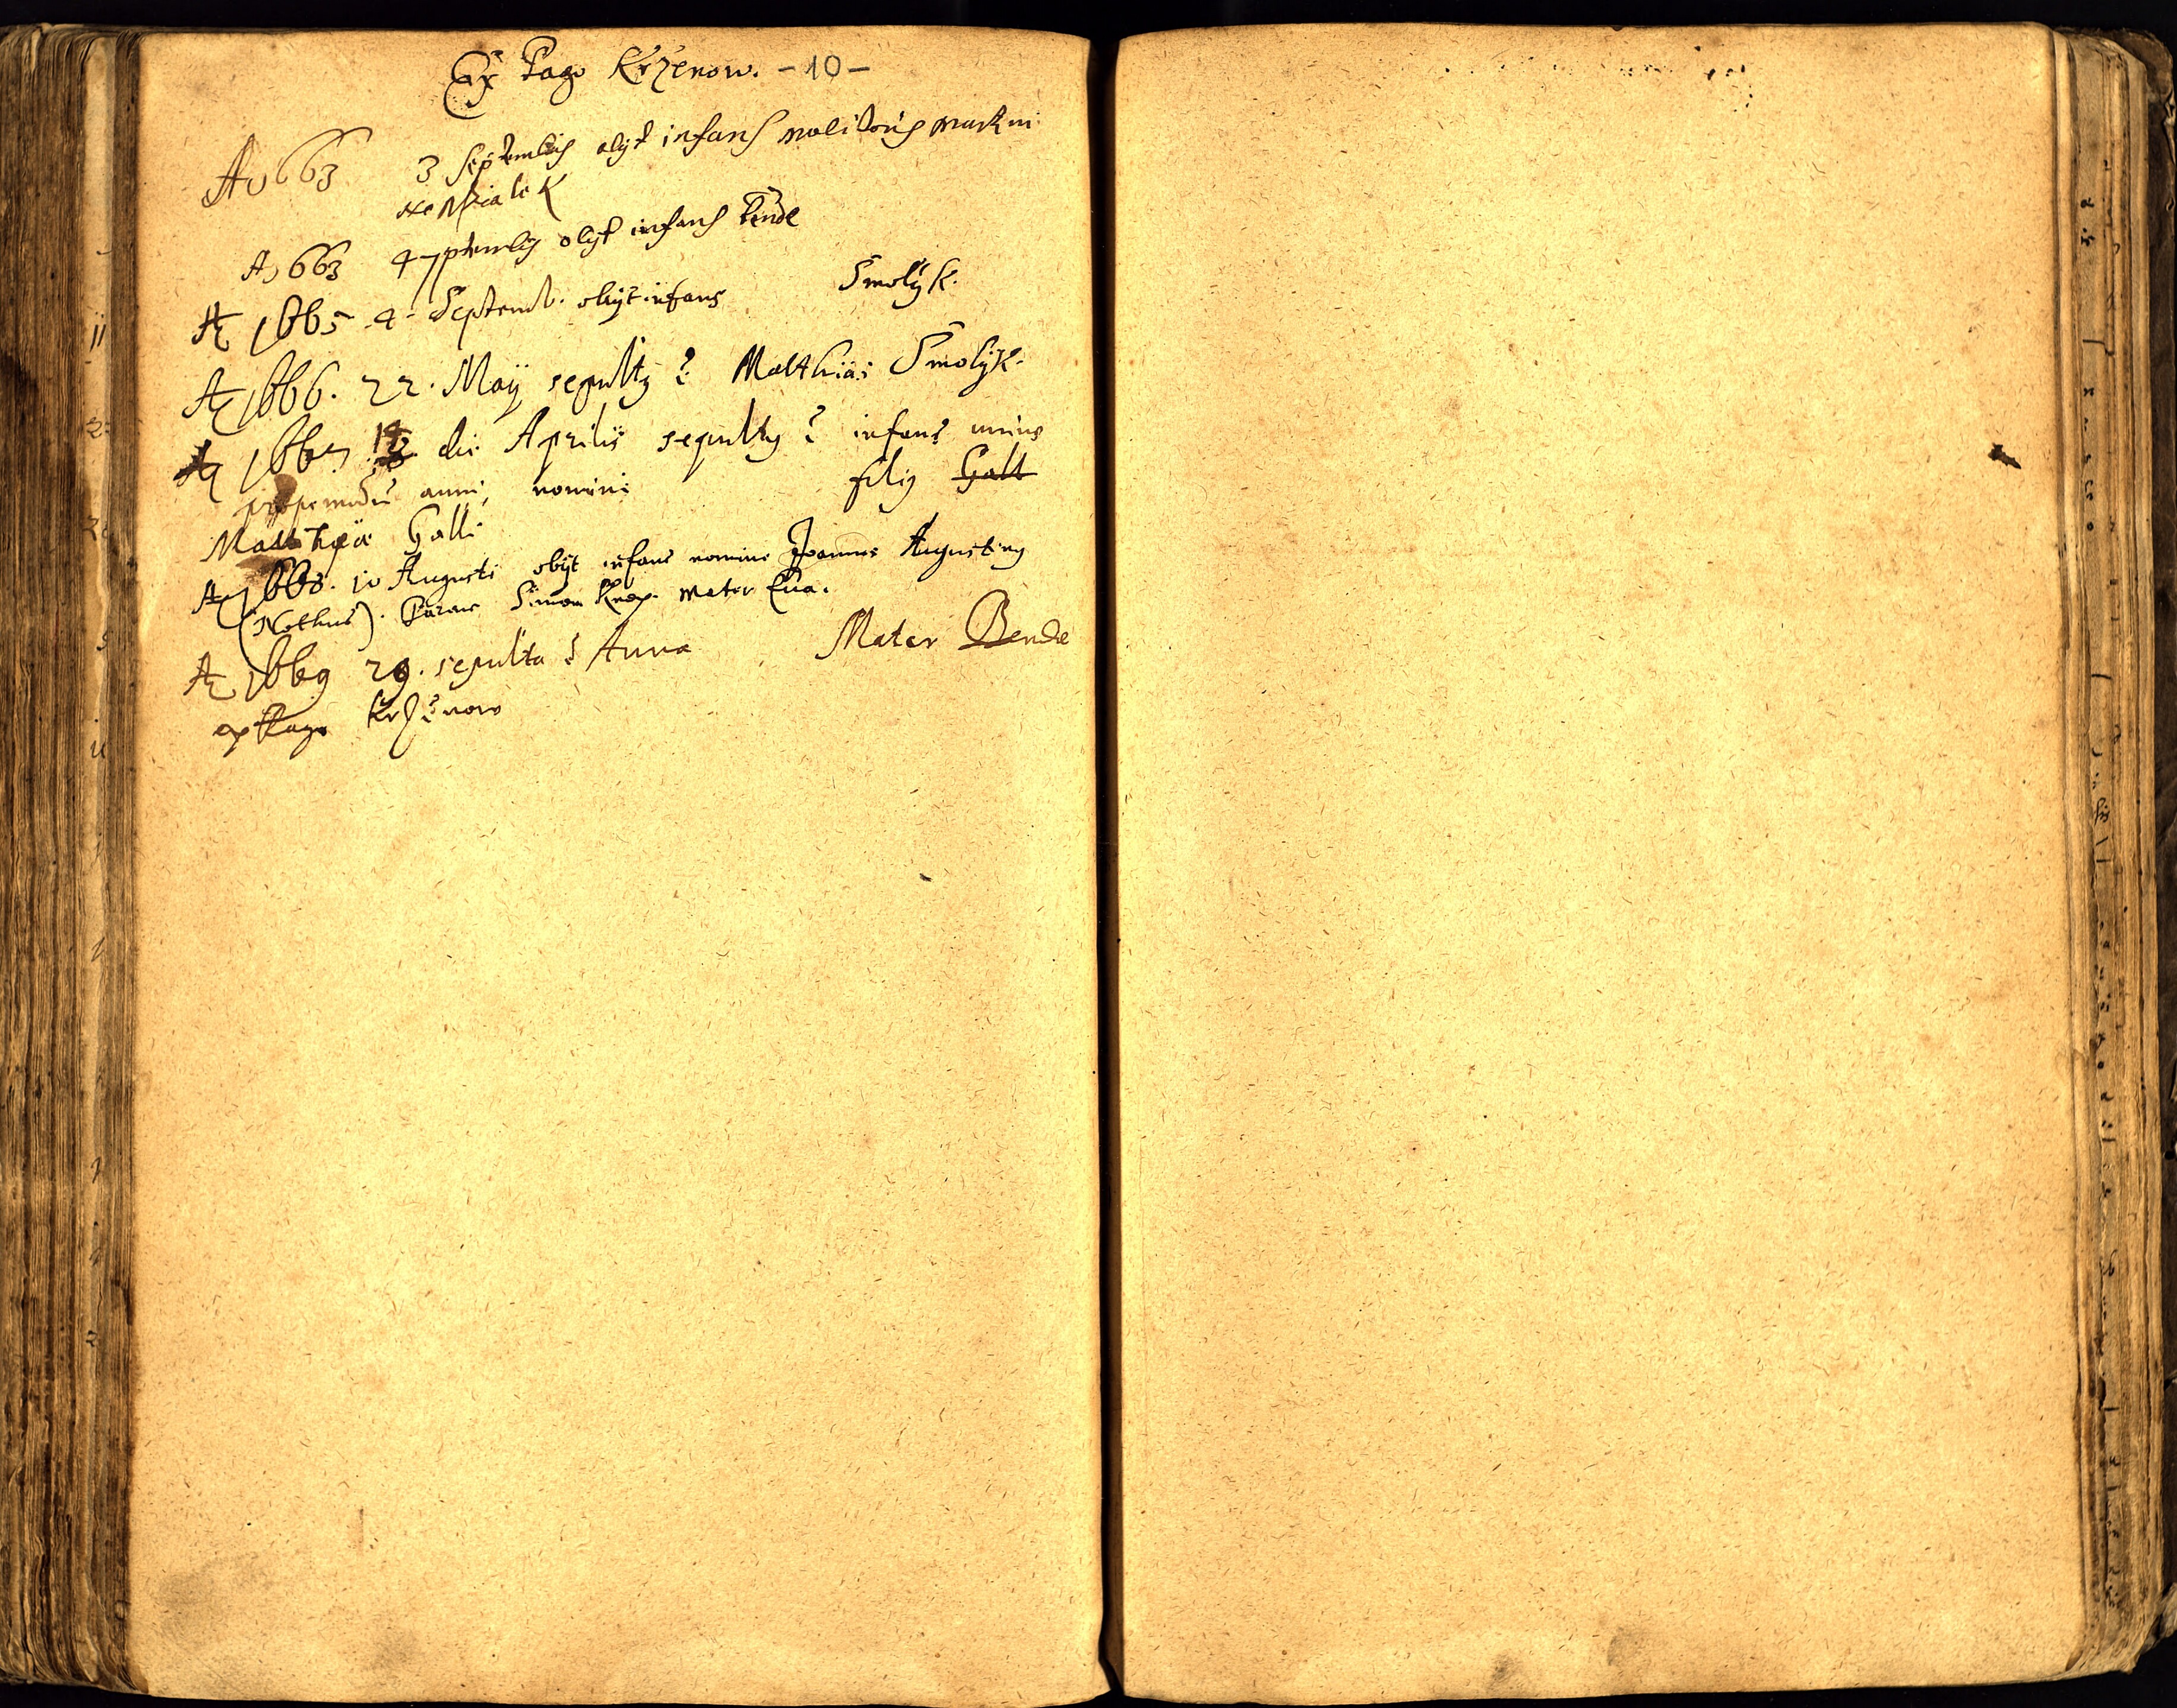 Ex Pago Krzenow. -10-
A 1663 3 septembris obyt infans molitoris martini
A 1663 4 7ptembris obyt infans Bende
A 1665 4. Septemb. obyt infans Smolyk.
A 1666. 22. Maij sepultus ē Matthias Smolyk.
A 1667 die Aprilis sepultus ē infans unius
propemodū anni, nomini filius Gall
Matthyae Galli
A 1668. 10 Augusti obijt infans nomine Joannes Augustinus
(Nothus). Parens Simon mater Eua.
A 1669 29. sepulta ē Anna Mater Bende
ex Pago Krzēnow